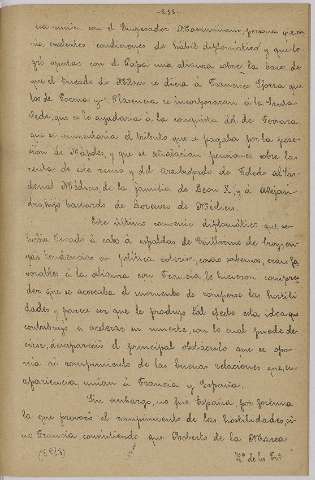 -255-
nó unirse con el Emperador Maximiliano, persona que re-
unía excelentes condiciones de hábil diplomático y que lo-
gró ajustar con el Papa una alianza sobre la base de
que el Ducado de Milán se diera á Francisco Sforza que
los de Parma y Plasencia se incorporaran á la Santa
Sede, que se le ayudaría á la conquista de Ferrara
que se aumentaría el tributo que se pagaba por la pose-
sión de Nápoles, y que se señalarían pensiones sobre las
rentas de ese reino y del Arzobispado de Toledo al Car-
denal Médicis, de la familia de León X, y á Alejan-
dro, hijo bastardo de Lorenzo de Médicis.
Este último convenio diplomático que se-
llevado á cabo á espaldas de Guillermo de Croy, cu-
yas tendencias en política exterior, como sabemos, eran fa-
vorables á la alianza con Francia, le hicieron compren-
der que se acercaba el momento de romperse las hostili-
dades, y parece ser que le produjo tal efecto esta idea que
contribuyó á acelerar su muerte, con lo cual puede de-
cirse, desapareció el principal obstáculo que se opo-
nía al rompimiento de las buenas relaciones que, en
apariencia, unían á Francia y España.
Sin embargo, no fué España por fortuna
la que provocó el rompimiento de las hostilidades, si-
no Francia consintiendo que Roberto de la Marca